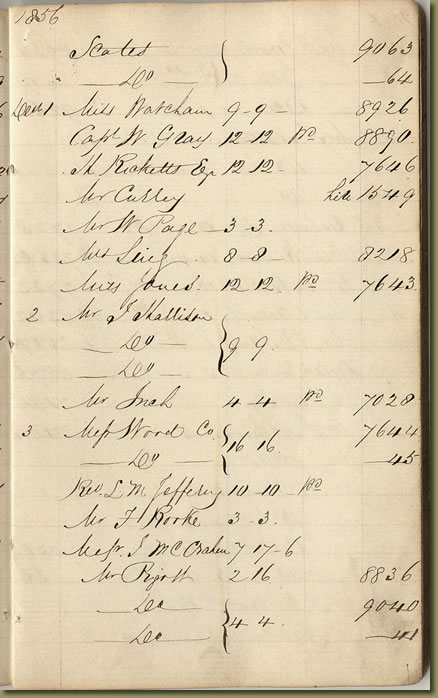 1856
Scates } 9063
— Do — — 64
Decr 1 Miss Watcham 9 - 9 - 8926
Capt W. Gray 12 - 12 Pd 8890
H Ricketts Eq 12 12 - 7646
Mr Currey hile 1549
Mr W Page — 3 - 3.
Mrs Ling 8 - 8 - 8218
Miss Jones. 12 12. Pd 7643
2 Mr J Hallison
— Do — { 9 9.
— Do —
Mr Inch 4 - 4 - Pd 7028
3 Messr Wood Co. { 16 16. 7644
— Do — — 45
Rev. L. M. Jeffery 10 - 10 - Pd
Mr H Rorke 3 - 3.
Messr. J McCraken 7 17 - 6
Mr Pigott 2 16 8836
— Do — { 4 4. 9040
— Do — — 41